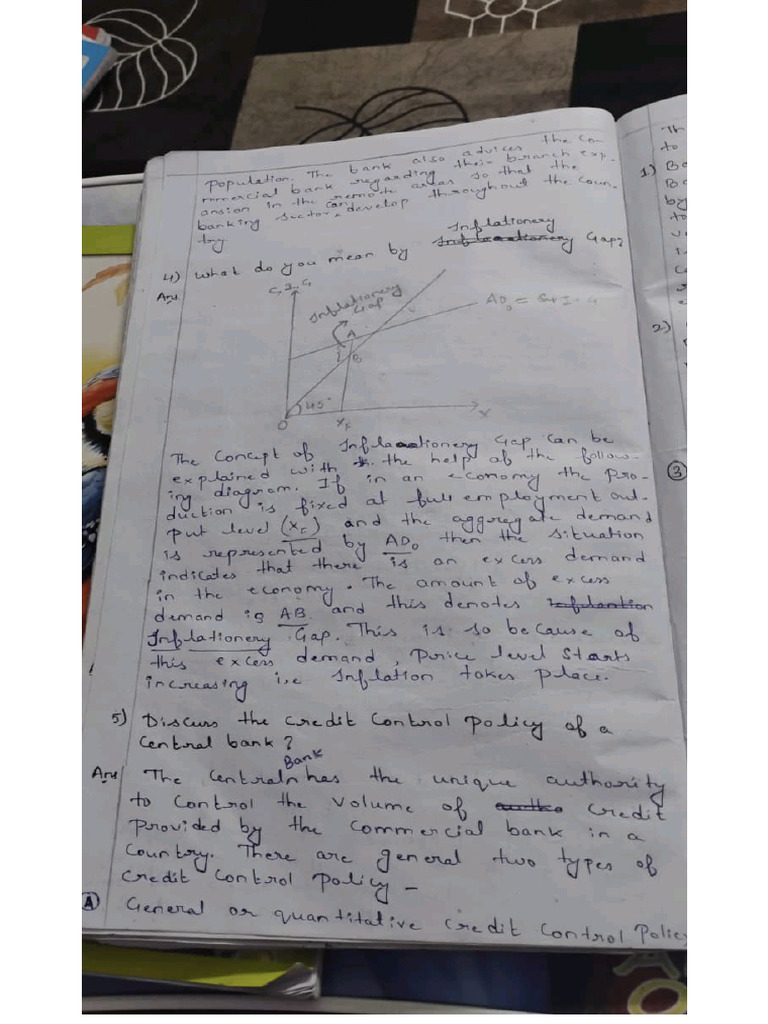 population. The bank also advices the co-
mmercial bank regarding their branch exp-
ansion in the remote areas so that the
banking sector can develop throughout the coun-
try
4) What do you mean by Inflationery Gap?
Ans
C, I, G
Inflationery
Gap
A
B
45°
O
X
AD₀ =
The Concept of Inflationery Gap can be
explained with the help of the follow-
ing diagram. If in an economy the pro-
duction is fixed at full employment out-
put level (XF) and the aggregate demand
is represented by AD₀ then the situation
indicates that there is an excess demand
in the economy. The amount of excess
demand is AB and this denotes
Inflationery Gap. This is so because of
this excess demand, price level starts
increasing i,e Inflation takes place.
5) Discuss the credit control policy of a
central bank?
Ans The Central Bank has the unique authority
to control the volume of credit
provided by the commercial bank in a
country. There are general two types of
credit control policy -
A General or quantitative credit control Policy
Th
to
1) Ba
by
to
2)
3